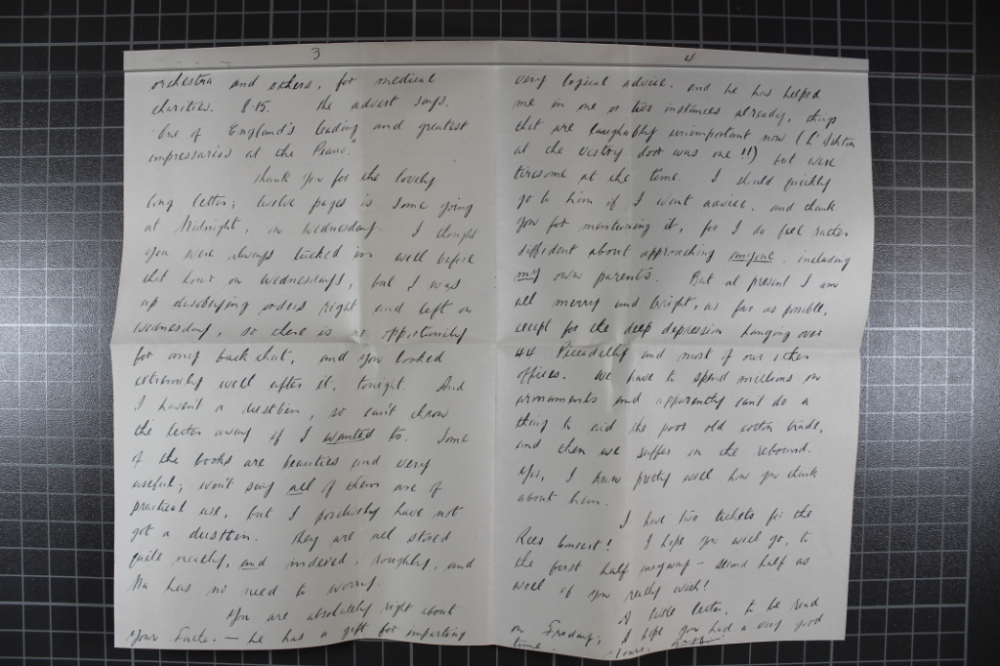 3
orchestra and others, for medical
charities. 8.15. The advert says.
"One of England's leading and greatest
impressarios at the Piano."
Thank you for the lovely
long letter; twelve pages is some going
at Midnight, on Wednesday. I thought
you were always tucked in well before
that hour on Wednesdays, but I was
up disobeying orders right and left on
Wednesday, so there is no opportunity
for any back chat, and you looked
extremely well after it, tonight. And
I haven't a dustbin, so can't throw
the letter away if I wanted to. Some
of the books are beauties and very
useful; won't say all of them are of
practical use, but I positively have not
got a dustbin. They are all stored
quite neatly, and indexed, roughly, and
Ma has no need to worry.
You are absolutely right about
your Uncle. — he has a gift for imparting
4
very logical advice. and he has helped
me in one or two instances already, things
that are laughably unimportant now (L' Ashton
at the vestry door was one!!) but were
tiresome at the time. I should quickly
go to him if I want advice. and thank
you for mentioning it, for I do feel rather
diffident about approaching anyone. including
my own parents. But at present I am
all merry and bright, as far as possible,
except for the deep depression hanging over
44 Piccadilly and most of our other
offices. We have to spend millions on
armaments and apparently cant do a
thing to aid the poor old cotton trade,
and then we suffer on the rebound.
Yes, I know pretty well how you think
about him.
I have two tickets for the
Rees Concert! I hope you will go, to
the first half anyway — second half as
well if you really wish!
A little letter, to be read
on Friday; I hope you had a very good
time. Yours,